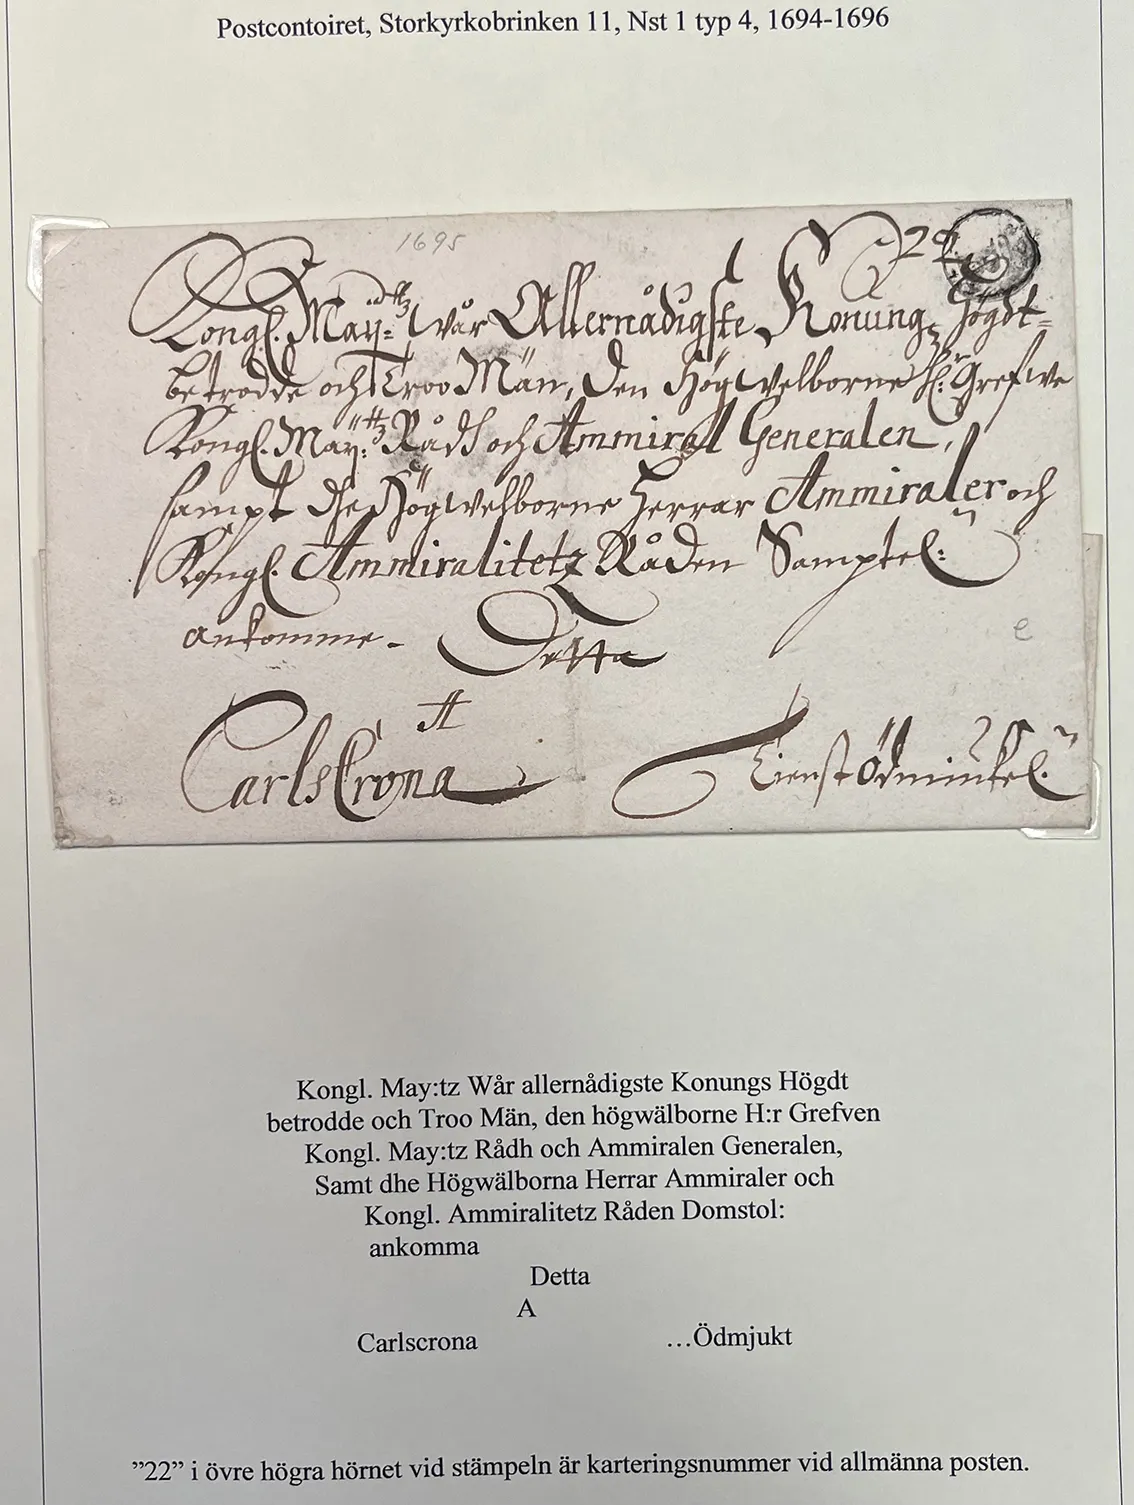 Postcontoiret, Storkyrkobrinken 11, Nst 1 typ 4, 1694-1696
1695
22
Kongl. May:tz Wår Allernådigste Konungz Högdt=
betrodde och Troo Män, den Högwelborne H:r Grefwe
Kongl. May:tz Rådh och Ammiral Generalen,
sampt dhe Högwelborne Herrar Ammiraler och
Kongl. Ammiralitetz Råden Samptel:
ankomme-
Detta
A
CarlsCrona
Tienst ödmiukel:
e
Kongl. May:tz Wår allernådigste Konungs Högdt
betrodde och Troo Män, den högwälborne H:r Grefven
Kongl. May:tz Rådh och Ammiralen Generalen,
Samt dhe Högwälborna Herrar Ammiraler och
Kongl. Ammiralitetz Råden Domstol:
ankomma
Detta
A
Carlscrona …Ödmjukt
”22” i övre högra hörnet vid stämpeln är karteringsnummer vid allmänna posten.